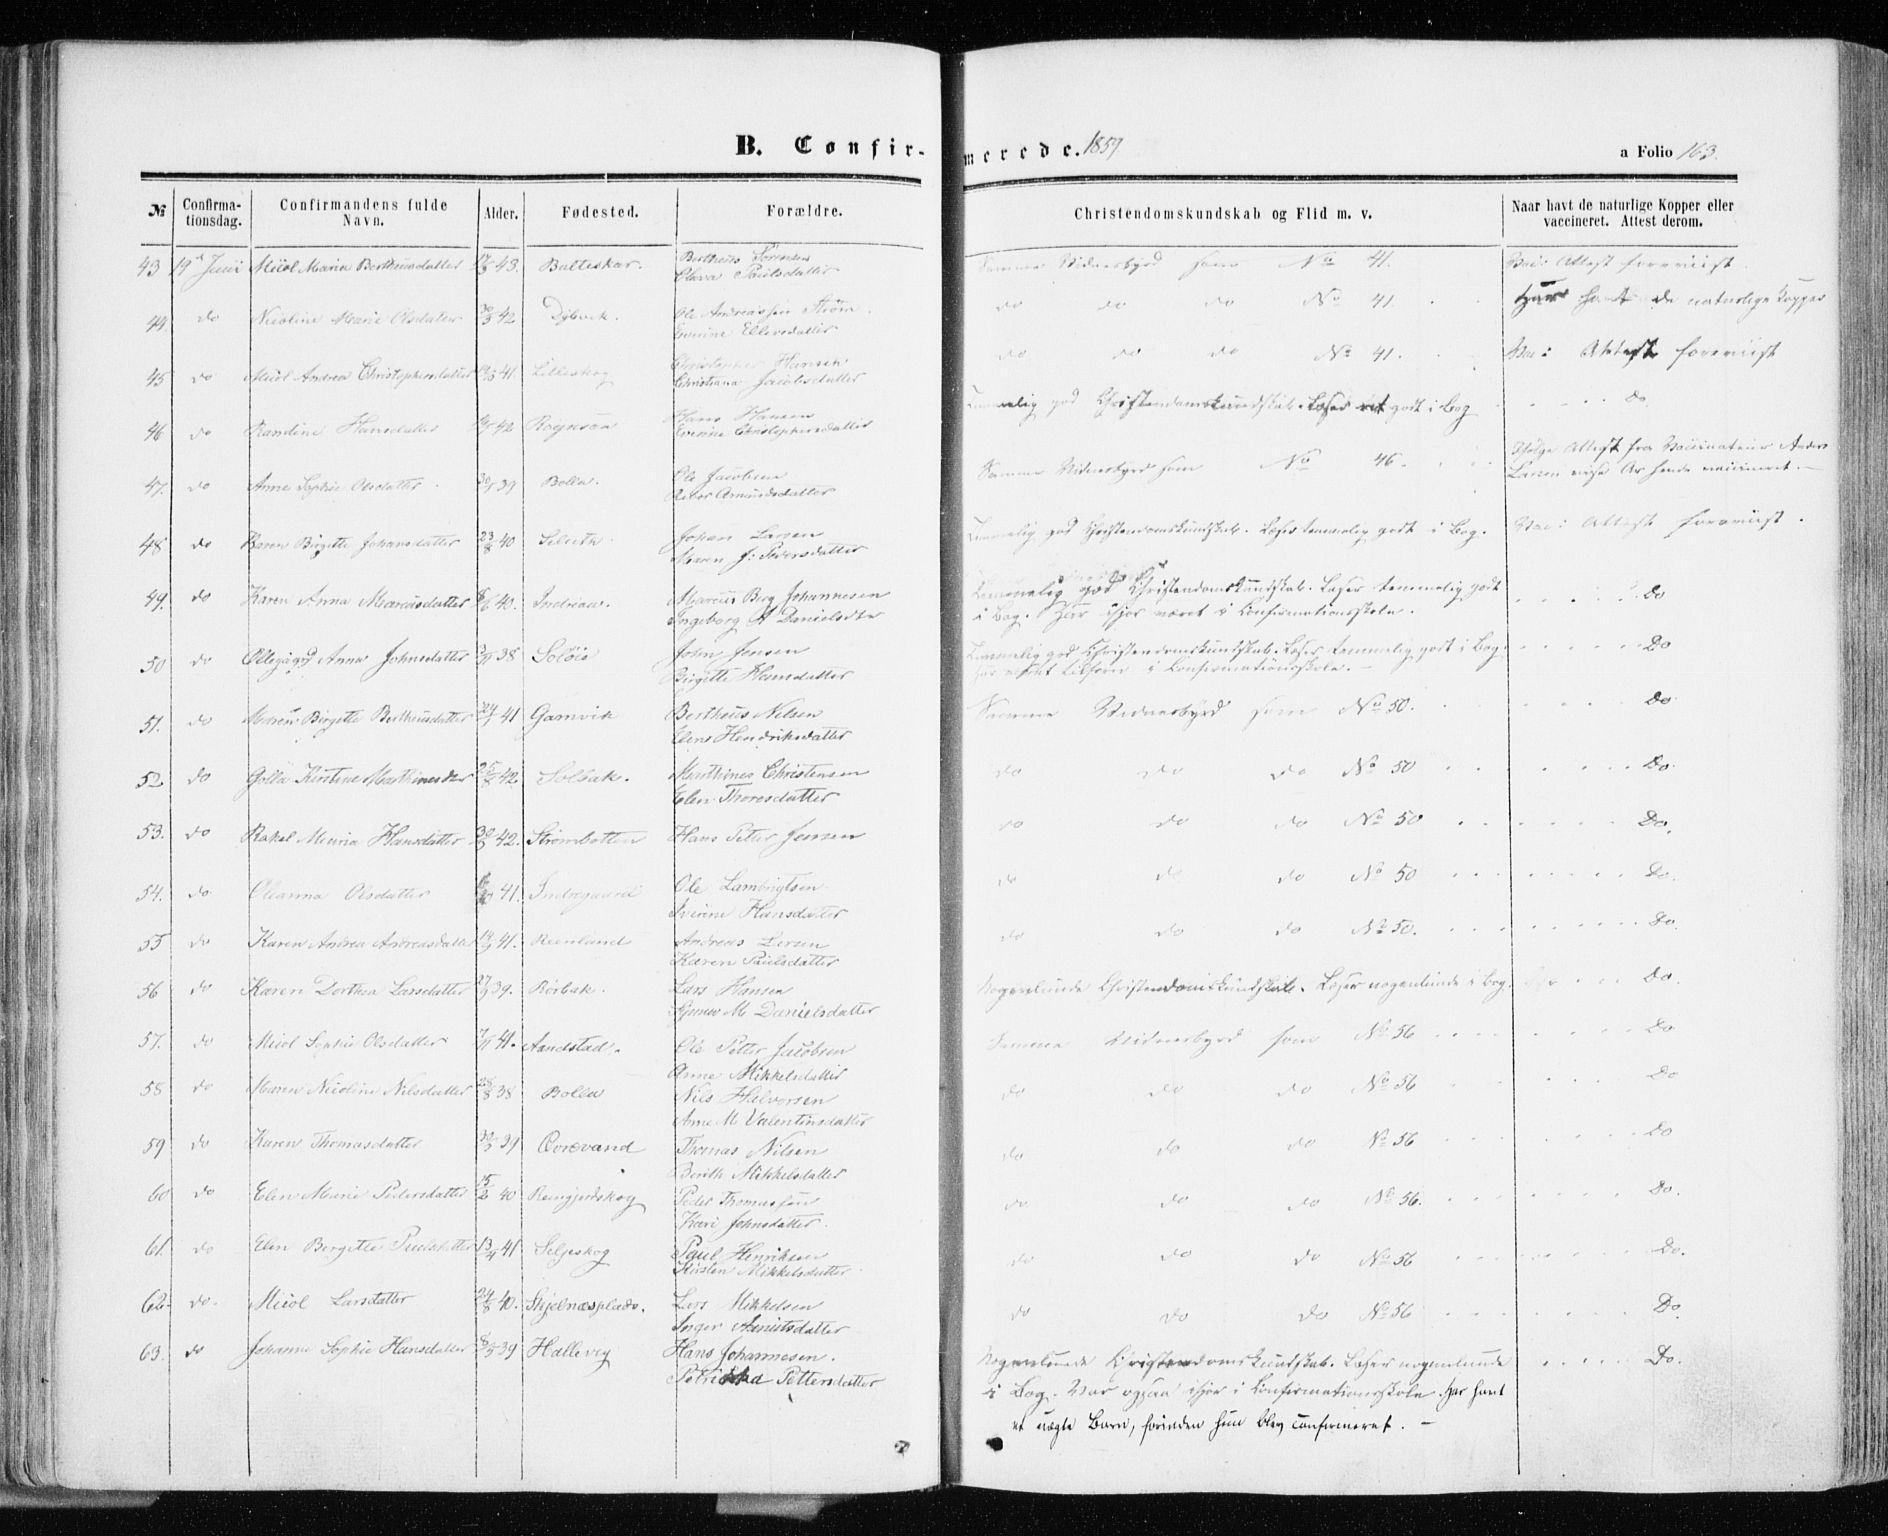 B. Confir-
merede. 1859
a Folio 163.
№
Confirma-
tionsdag.
Confirmandens fulde
Navn.
Alder.
Fødested.
Forældre.
Christendomskundskab og Flid m. v.
Naar havt de naturlige Kopper eller
vaccineret. Attest derom.
43 19de Juni Maria Bertheusdatter 43. Balteskar. Bertheus Sørensen
Olava Paulsdatter
Samme Vidnesbyrd som No 41. Vac: Attest foreviist.
44. do Nicoline Marie Olsdatter 42 Dybvik. Ole Andreassen Strøm.
Everine Ellevsdatter
do do do No 41. Har havt de naturlige Kopper
45 do Andrea Christophersdatter 41. Lilleskog Christopher Hansen
Christiana Jacobsdatter
do do do No 41. Vac: Attest foreviist
46 do Randine Hansdatter 42 Rognsaa Hans Hansen
Everine Christophersdatter
Temmelig god Christendomskundskab. Læser ret godt i Bog Do
47. do Anne Sophie Olsdatter 39 Bolla. Ole Jacobsen
Amundsdatter
Samme Vidnesbyrd som No 46. Ifølge Attest fra Vaccinateur Anders
Larsen
48 do Karen Birgitte Johansdatter 23/8 40 Johan Larsen
Maren J: Peversdatter
Temmelig god Christendomskundskab. Læser temmelig godt i Bog. Vac: Attest foreviist.
49. do Karen Anna Marcusdatter 40. Indreaa. Marcus Berg Johannesen
Ingeborg A Danielsdtr
Temmelig god Christendomskundskab. Læser temmelig godt
i Bog. Har ifjor været i Confirmationsskole. Do
50 do Anna Johnsdatter 38 John Jensen
Birgitte Hansdatter
Temmelig god Christendomskundskab. Læser temmelig godt i Bog
har været tilforn i Confirmationsskole. Do
51. do Maren Birgitte Bertheusdatter 41 Gamvik Bertheus Nilsen
Elene Hendriksdatter
Samme Vidnesbyrd som No 50. Do
52 do Golla Kirstine Marthinesdtr 42 Solbak. Marthines Christensen
Elen Thoresdatter
do do do No 50 Do.
53. do Rakel Maria Hansdatter 42. Strømbotten Hans Petter Jensen
do do do No 50 Do.
54. do Oleanna Olsdatter 41. Indregaard Ole Lambrigtsen
Iverine Hansdatter
do do do No 50 Do.
55 do Karen Andrea Andreasdatt 41. Reenland Andreas Larsen
Karen Paulsdatter
do do do No 50. Do.
56 do Karen Dorthea Larsdatter 27/9 39. Rørbak. Lars Hansen
M Danielsdatter
Nogenlunde Christendomskundskab. Læser nogenlunde i Bog. Do.
57. do Sophie Olsdatter 7/11 41. Aandstad. Ole Petter Jacobsen
Anne Mikkelsdatter
Samme Vidnesbyrd som No 56 Do
58 do Maren Nicoline Nilsdatter 38 Bolla Nils Halvorsen
Anne M Valentinsdatter
do do do No 56 Do
59 do Karen Thomasdatter 39 Qvrevand Thomas Nilsen
Berith Mikkelsdatter
do do do No 56 Do
60 do Elen Marie Pedersdatter 15/2 40 Peder Thomassen
Kari Johnsdatter.
do do do No 56. Do.
61. do Elen Bergitte Paulsdatter 13/4 41 Seljeskog Paul Henriksen
Kirsten Mikkelsdatter
do do do No 56 Do.
62. do. Larsdatter 24/8 40. Skjelnesplads. Lars Mikkelsen
Inger
do do do No 56 Do
63. do Johanna Sophie Hansdatter 39 Hallevig Hans Johannesen.
Pettersdatter
Nogenlunde Christendomskundskab. Læser nogenlunde
i Bog. Var ogsaa ifjor i Confirmationsskole. Har havt
et uægte Barn, forinden hun blev confirmeret. Do.